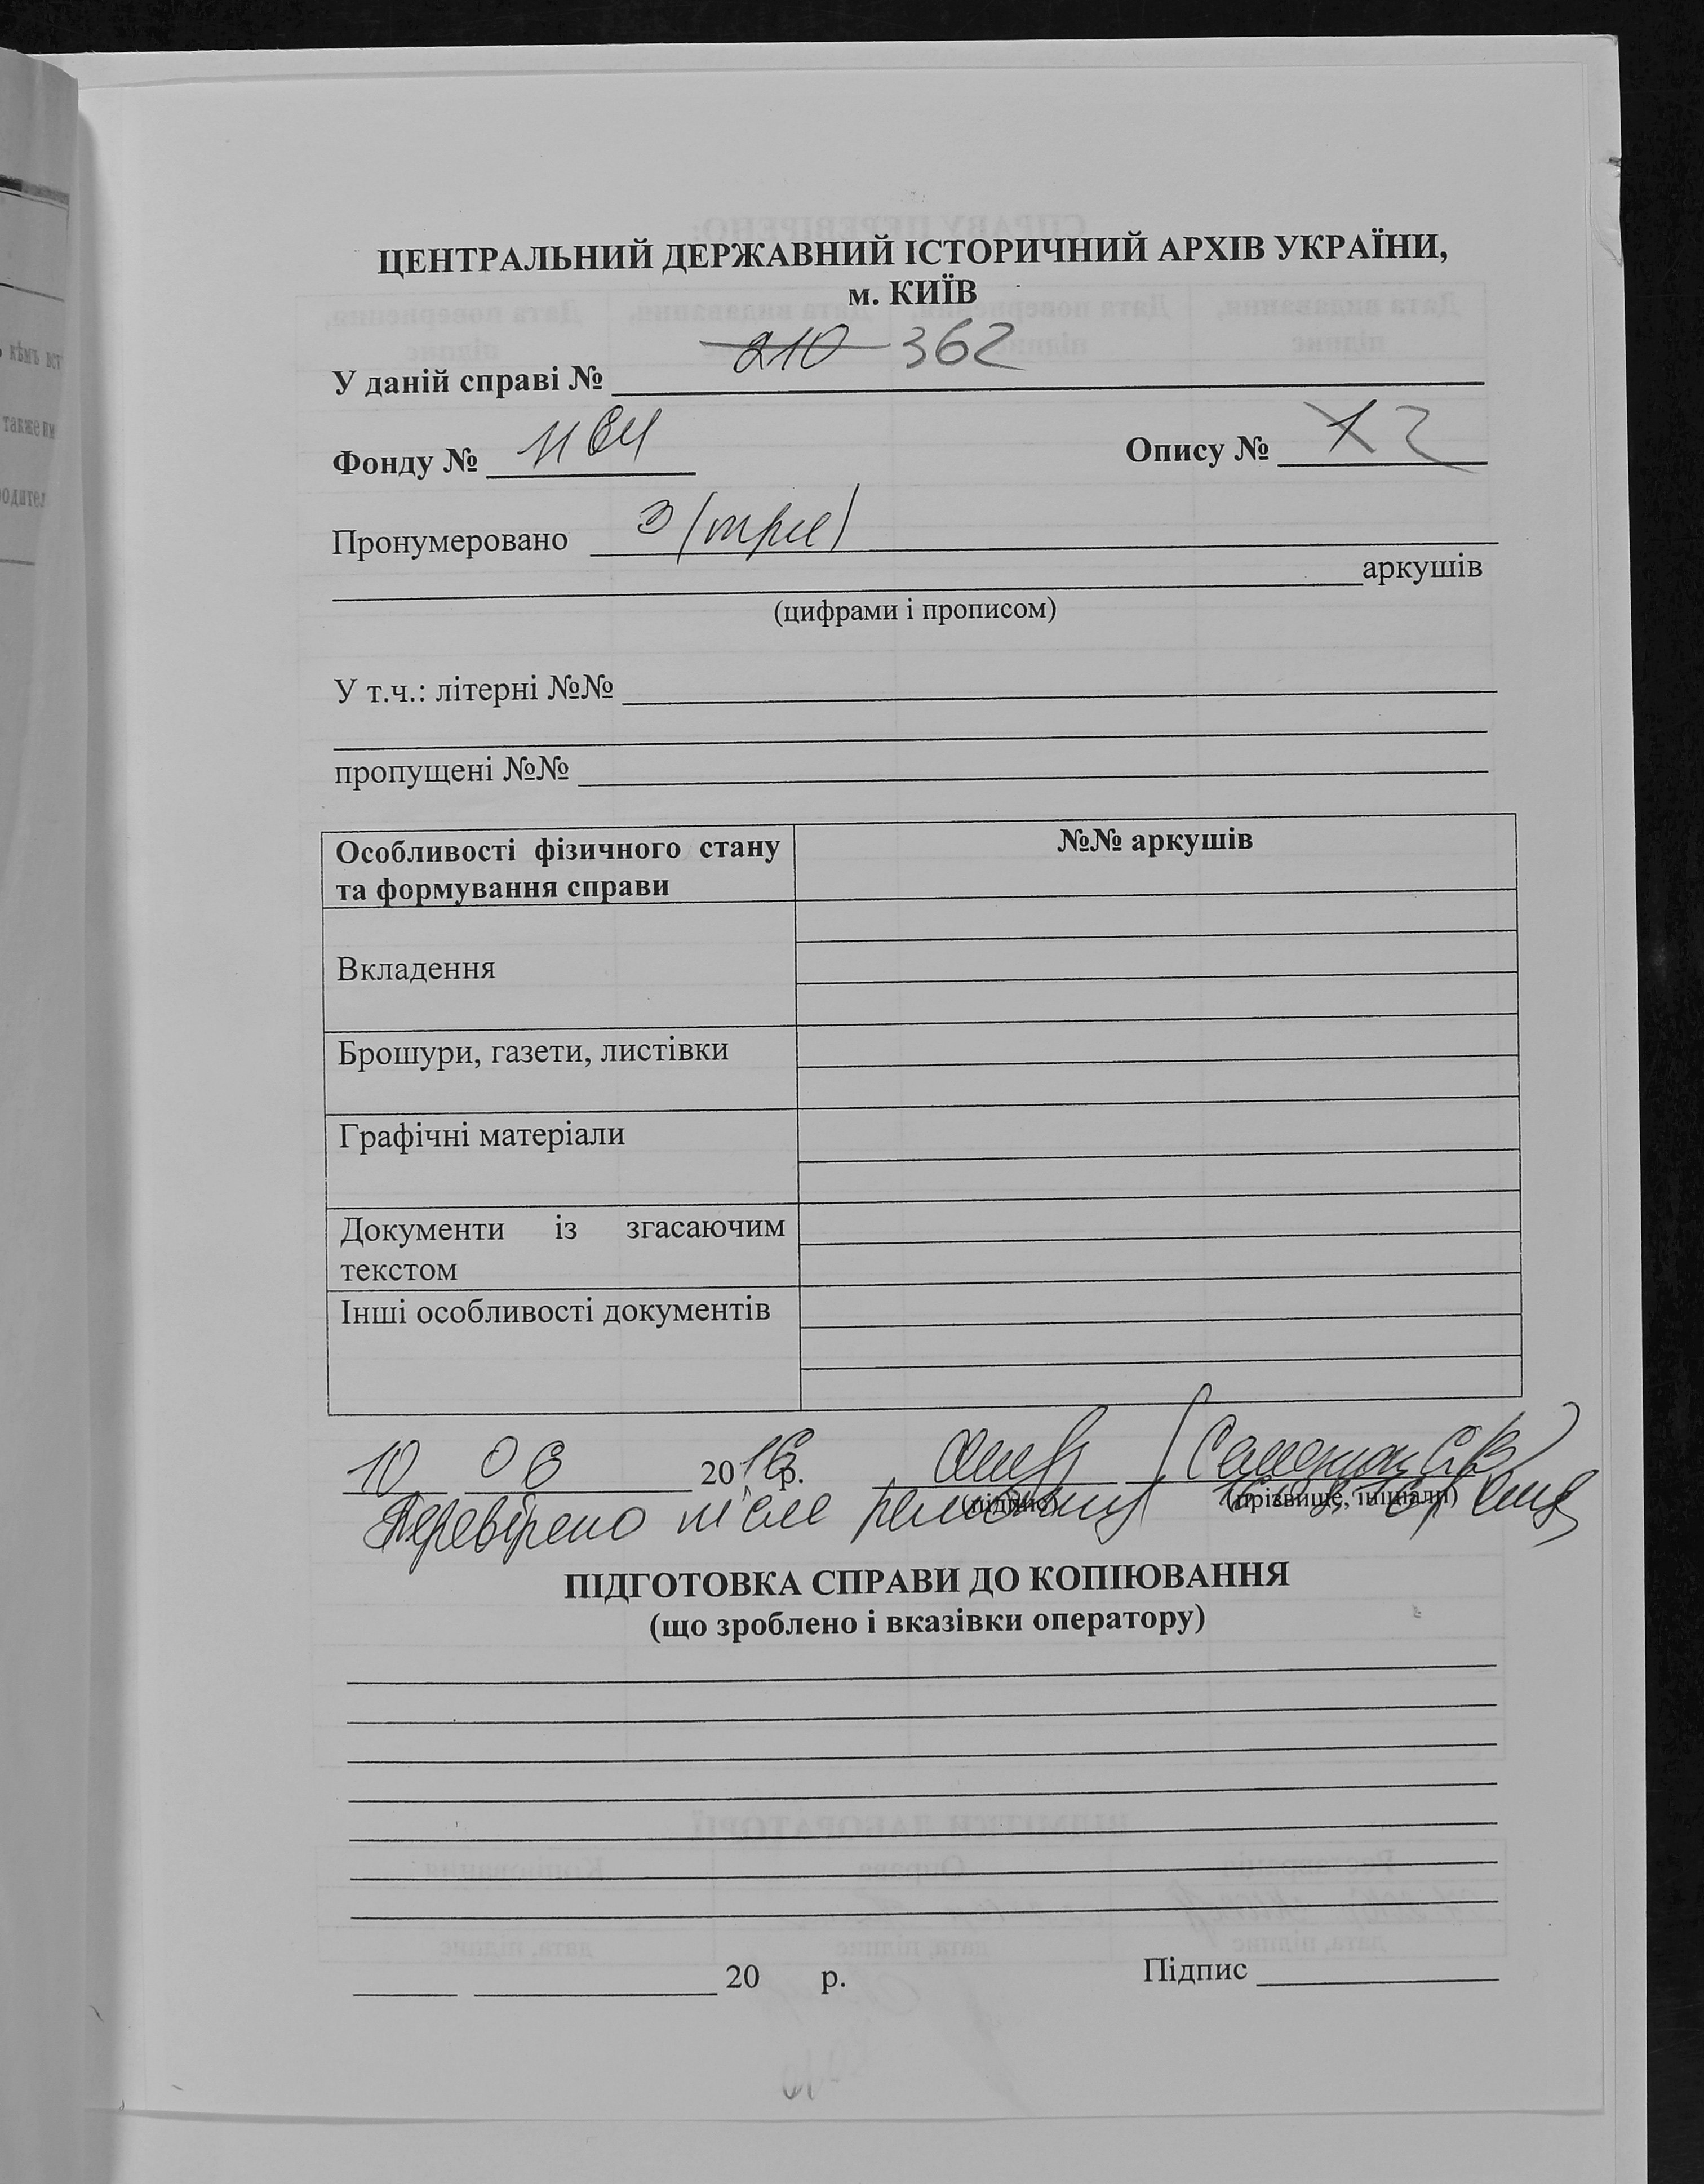 ЦЕНТРАЛЬНИЙ ДЕРЖАВНИЙ ІСТОРИЧНИЙ АРХІВ УКРАЇНИ,
м. КИЇВ
У даній справі № 210 362
Фонду № 1164 Опису № 1 2
Пронумеровано 3 (три)
аркушів
(цифрами і прописом)
У т.ч.: літерні №№
пропущені №№
Особливості фізичного стану та формування справи
№№ аркушів
Вкладення
Брошури, газети, листівки
Графічні матеріали
Документи із згасаючим текстом
Інші особливості документів
10 03 2016 р.
(підпис) (прізвище, ініціали)
Перевірено після ремонту
ПІДГОТОВКА СПРАВИ ДО КОПІЮВАННЯ
(що зроблено і вказівки оператору)
20 р. Підпис